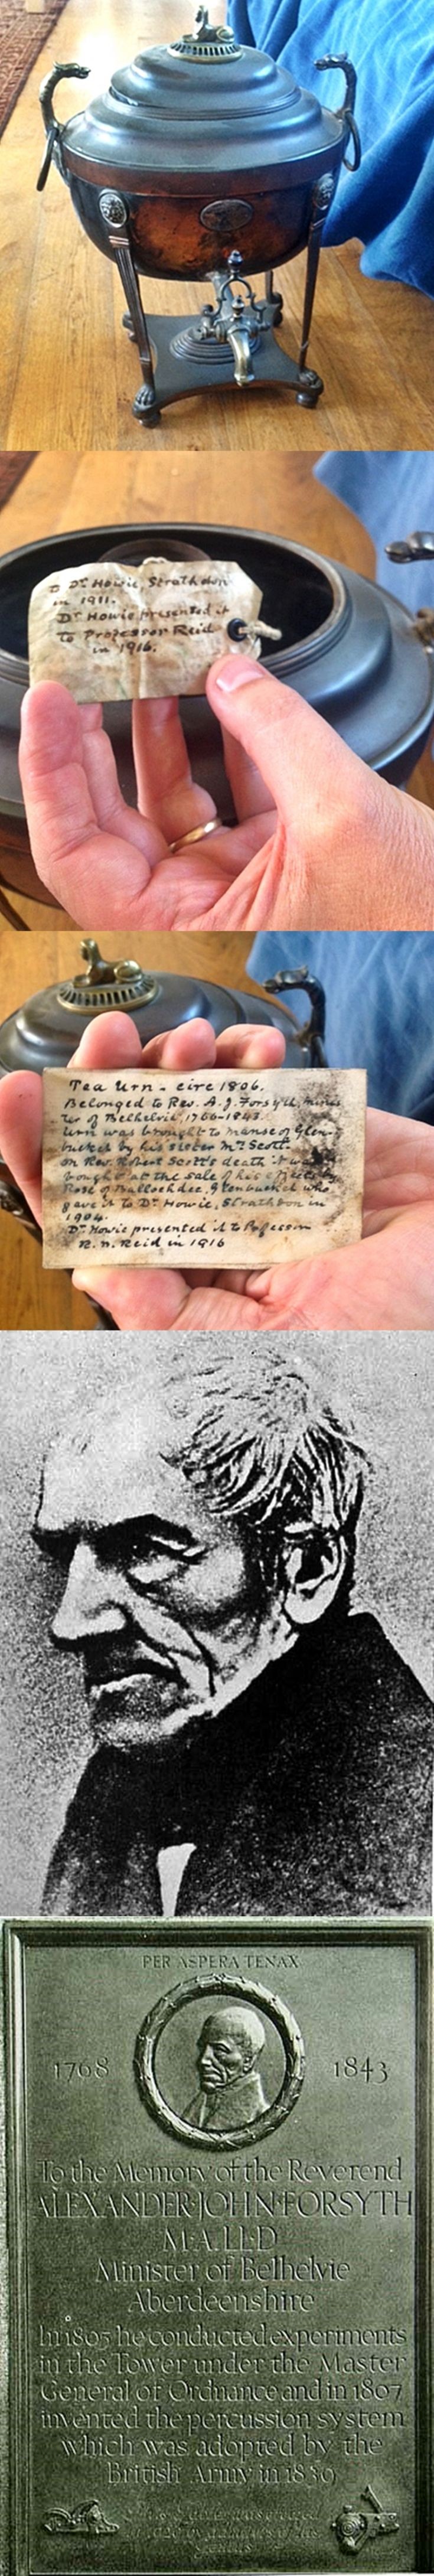 to Dr. Howie, Strathdon
in 1911.
Dr. Howie presented it
to Professor Reid
in 1916.
Tea Urn - circ 1806.
Belonged to Rev. A. J. Forsyth, minis
ter of Belhelvie, 1766-1843.
Urn was brought to manse of Glen-
bucket by his sister Mrs. Scott.
On Rev. Robert Scott's death it was
bought at the sale of his effects by
Rose of Ballochdee, Glenbucket who
gave it to Dr. Howie, Strathdon in
1904.
Dr. Howie presented it to Professor
R. W. Reid in 1916
PER ASPERA TENAX
1768 1843
To the Memory of the Reverend
ALEXANDER·JOHN·FORSYTH
M·A·LL·D
Minister of Belhelvie
Aberdeenshire
In 1805 he conducted experiments
in the Tower under the Master
General of Ordnance and in 1807
invented the percussion system
which was adopted by the
British Army in 1839